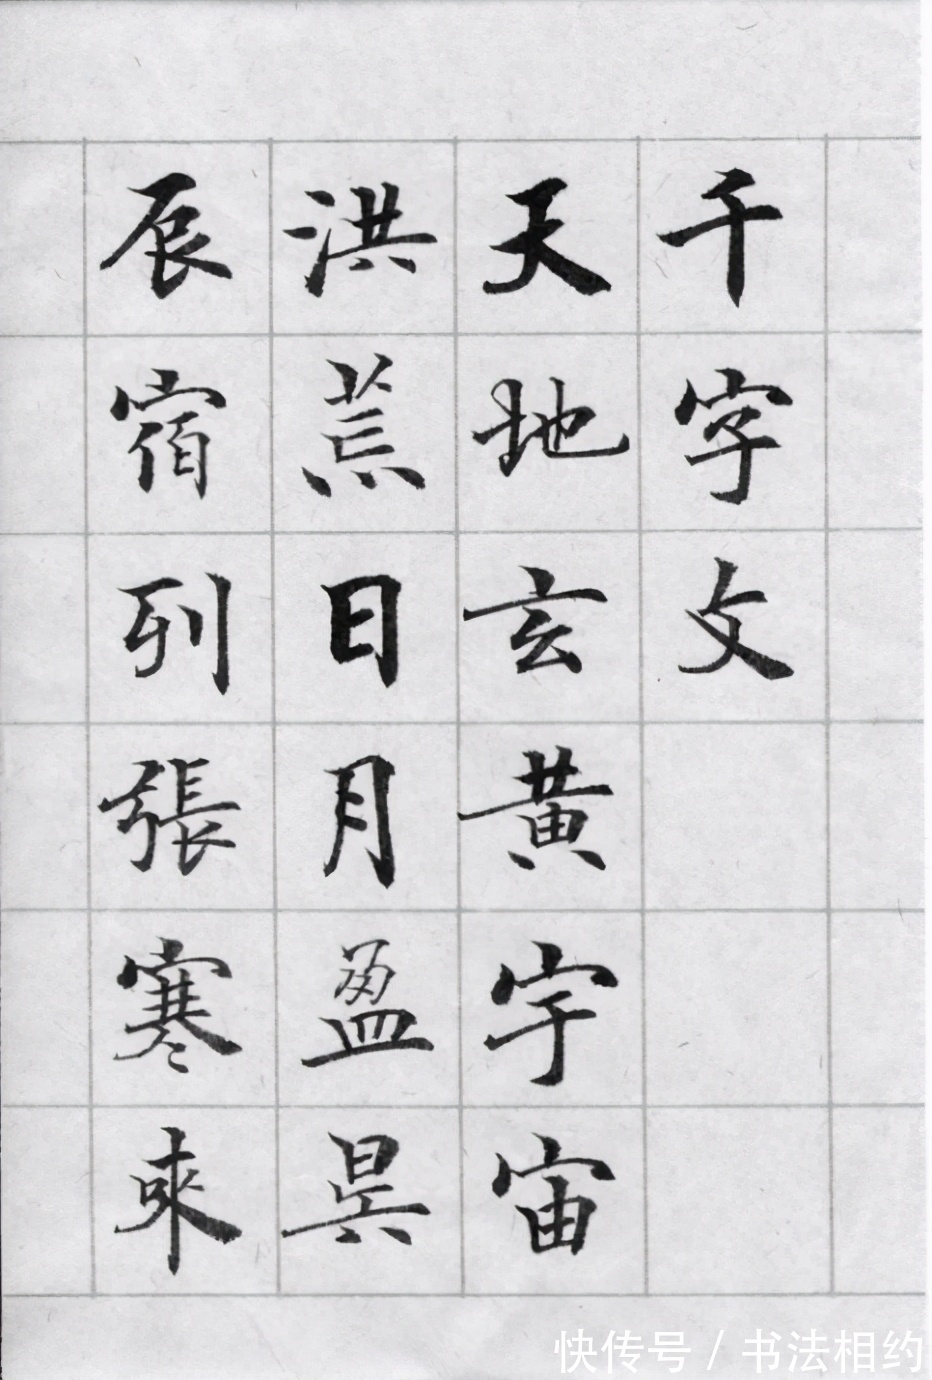 千字文
天地玄黃宇宙
洪荒日月盈昃
辰宿列張寒來
快传号/书法相约